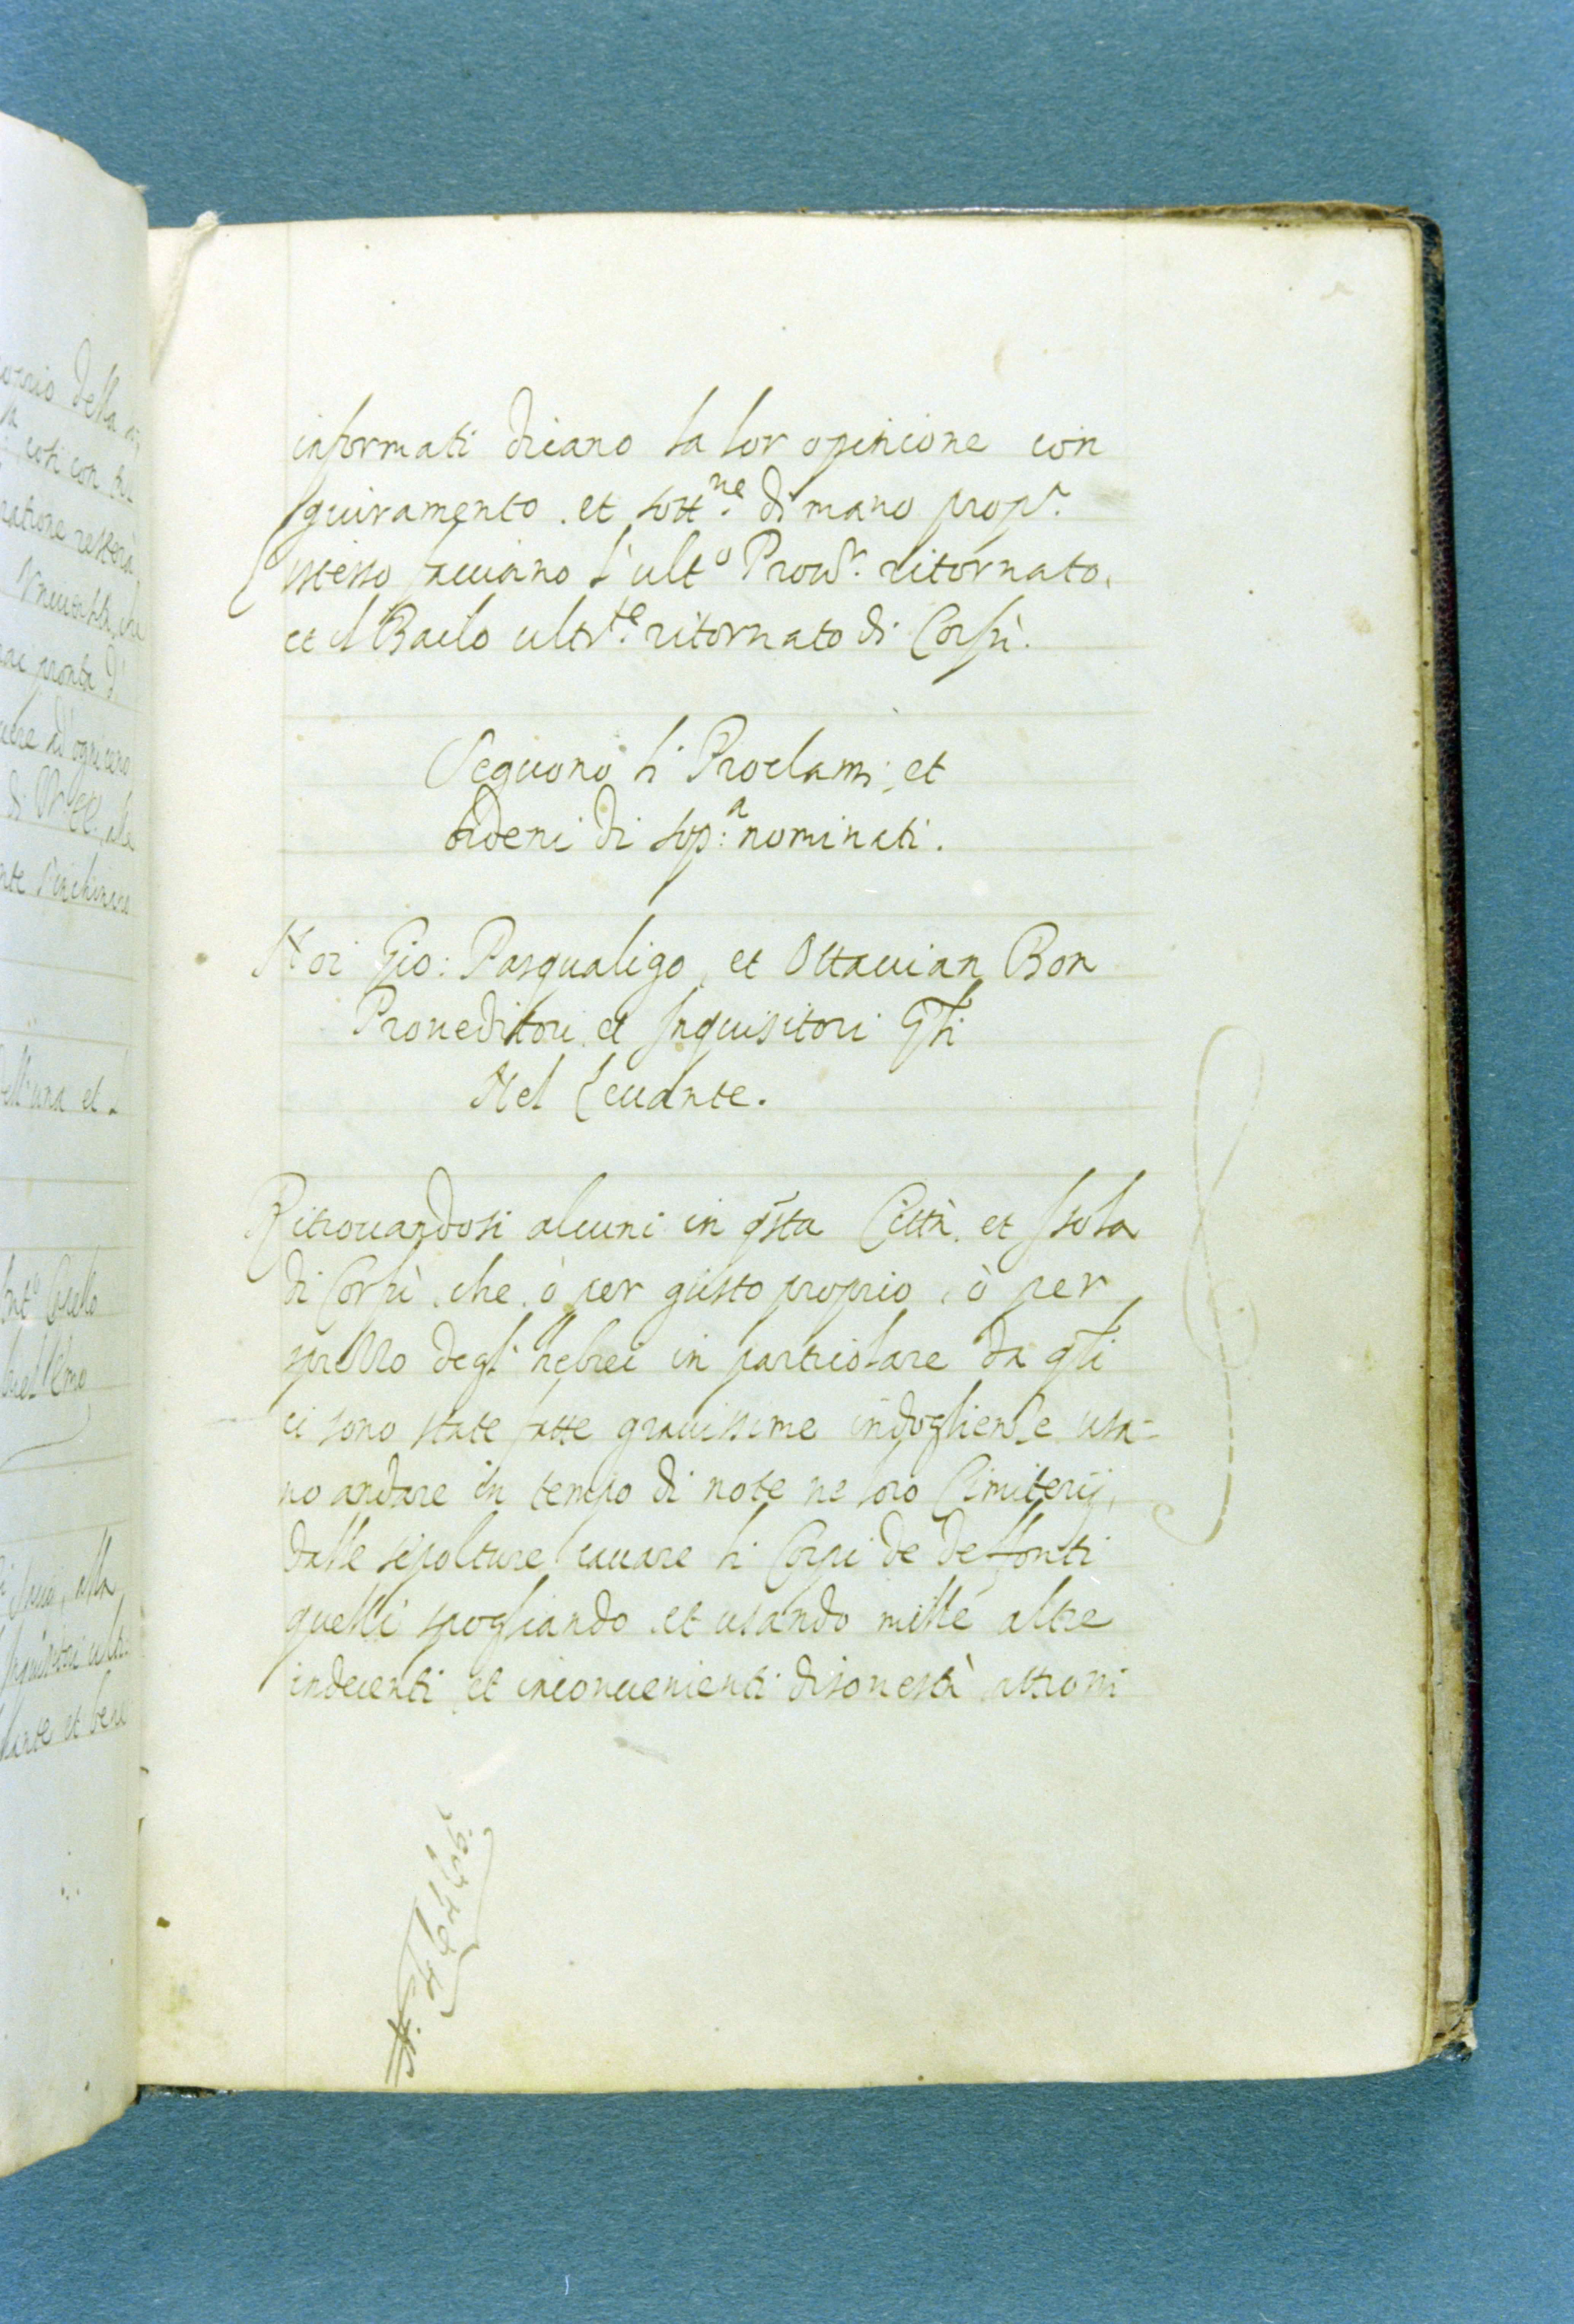 informati dicano la lor opinione con
giuramento. et sott.ne di mano prop.r
istesso facciano l'ult.o Prov.r ritornato,
et il Bailo ult.te ritornato di Corfù.
Seguono li Proclami, et
ordeni di sop:a nominati.
Noi Gio: Pasqualigo, et Ottavian Bon
Proveditori, et Inquisitori Gñli
Nel Levante.
Ritrovandosi alcuni in qsta Città, et Isola
di Corfù, che, ò per gusto proprio, ò per
sprezzo degl' hebrei in particolare da qli
ci sono state fatte gravissime indoglienze usa-
no andare in tempo di note ne loro Cimiterij,
dalle sepolture cavare li Corpi de deffonti
quelli spogliando, et usando mille altre
indecenti, et inconvenienti disonestà attioni
della
così con
resterà
pronta
d'ogni
dell'una et
alla
et bene